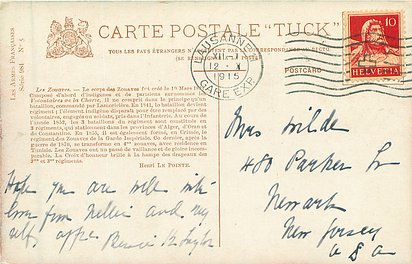 CARTE POSTALE "TUCK"
TOUS LES PAYS ÉTRANGERS N'ACCEPTENT PAS LA CORRESPONDANCE AU RECTO.
(SE RENSEIGNER À LA POSTE)
POSTCARD
LAUSANNE
XII-
12 X
1915
GARE EXP.
10
HELVETIA
Les Armes Françaises
Série 984 N° 5
Les Zouaves. — Le corps des Zouaves fut créé le 10 Mars
Composé d'abord d'indigènes et de
Volontaires de la Charte, il ne comprit dans le principe qu'un
bataillon, commandé par Lamoricière. En 1841, ils devinrent
régiment; l'élément indigène disparut pour être remplacé par des
volontaires, engagés ou soldats, pris dans l'infanterie. Au
cours de 1852, les 3 bataillons du régiment sont constitués en
3 régiments, qui stationnent dans les provinces d'Alger, d'Oran et
de Constantine. En 1855, il est également formé, en Crimée, le
régiment de Zouaves de la Garde Impériale. Ce dernier, après la
guerre de 1870, se transforme en 4me zouaves, avec résidence en
Tunisie. Les Zouaves ont un passé de vaillance et de gloire incompa-
rable. La Croix d'honneur brille à la hampe des drapeaux des
2me et 3me régiments.
Henri Le Pointe.
Hope you are well with
love from Nellie and my
self,
Mrs Wilde
480 Parker St
Newark
New Jersey
U S A